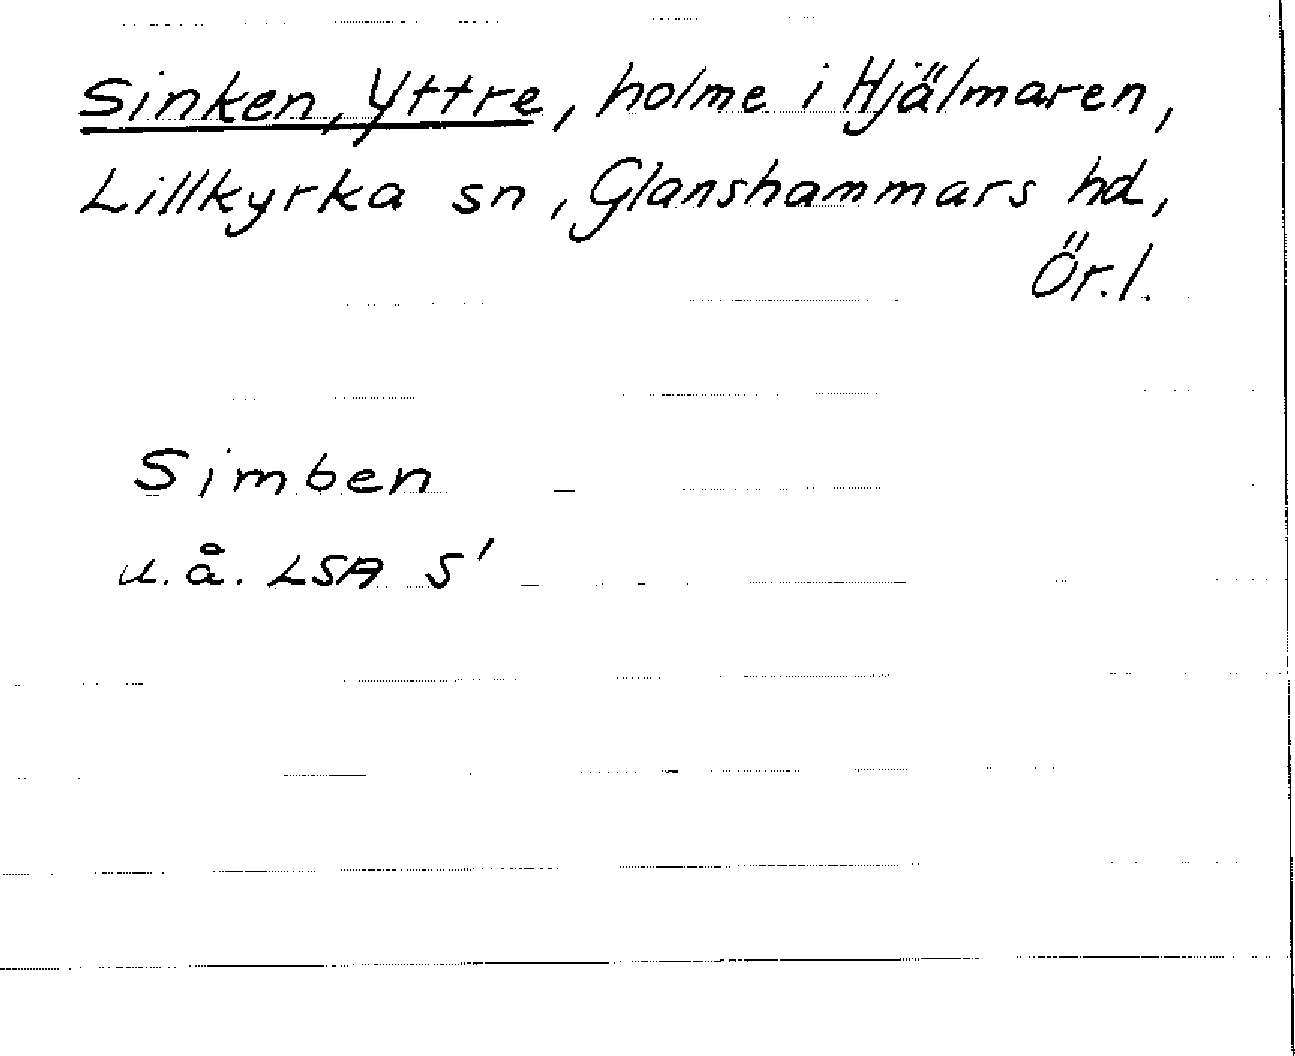 Sinken, Yttre, holme i Hjälmaren,
Lillkyrka sn, Glanshammars hd,
Ör.l.
Simben
u.å. LSA S'